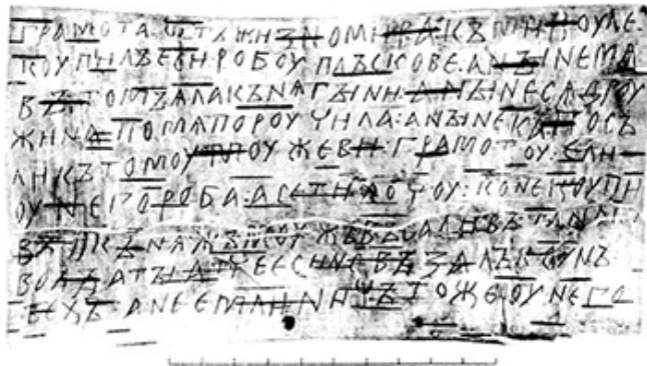 ГРАМОТА ѠТЪ ЖИЗНОМИРА КЪ МИКОУЛЕ
КОУПИЛЪ ЕСИ РОБОУ ПЛЪСКОВЕ А НЫНЕ МѦ
ВЪ ТОМЪ ѦЛА КЪНѦГЫНИ А НЫНЕ СѦ ДРОУ
ЖИНА ПО МѦ ПОРОУЧИЛА А НЫНЕ КА ПОСЪ
ЛИ КЪ ТОМОУ МОУЖЕВИ ГРАМОТОУ ЕЛИ
ОУ НЕГО РОБА А СЕ ТИ ХОЧОУ КОНЕ КОУПИ
ВЪ И КЪНѦЖЪ МОУЖЪ ВЪСАДИВЪ ТА НА СЪ
ВОДЫ А ТЫ АЧЕ ЕСИ НЕ ВЪЗАЛЪ КОУНЪ
ТЕХЪ А НЕ ЕМЛИ НИЧЪТО ЖЕ ОУ НЕГО